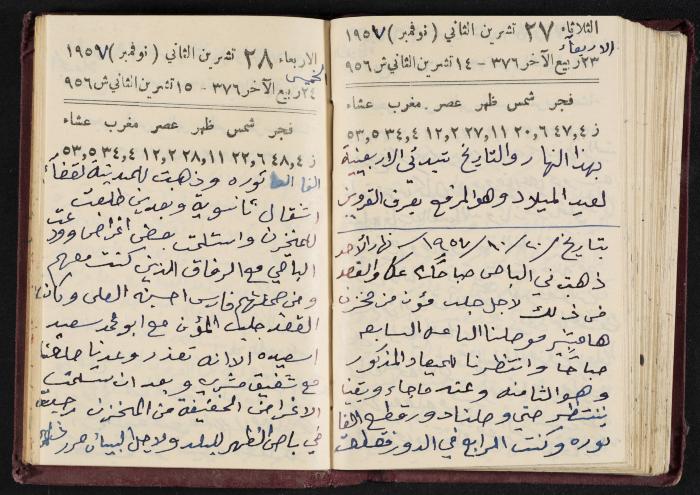 الثلاثاء ٢٧ تشرين الثاني (نوفمبر) ١٩٥٧
الاربعاء
٢٣ ربيع الآخر ٣٧٦ – ١٤ تشرين الثاني ش ٩٥٦
فجر شمس ظهر عصر مغرب عشاء
ز ٤٧,٤ ٢٠,٦ ٢٧,١١ ١٢,٢ ٣٤,٤ ٥٣,٥
بهذا النهار والتاريخ تبتدئ الاربعينية
لعيد الميلاد وهو المرفع بعرف القرويين
بتاريخ ٢٠/١٠/١٩٥٧ نهار الاحد
ذهبت في الباص صباحًا عكا والقصد
من ذلك لاجل جلب مؤن من مخزن
وصلنا الساعه السابعه
صباحًا وانتظرنا للميعاد المذكور
وهو الثامنه وعنه ما جاء وبقينا
ننتظر حتى وصلنا دور قطع الفا
توره وكنت الرابع في الدور فقطعت
الاربعاء ٢٨ تشرين الثاني (نوفمبر) ١٩٥٧
الخميس
٢٤ ربيع الآخر ٣٧٦ – ١٥ تشرين الثاني ش ٩٥٦
فجر شمس ظهر عصر مغرب عشاء
ز ٤٨,٤ ٢٢,٦ ٢٨,١١ ١٢,٢ ٣٤,٤ ٥٣,٥
الفا توره وذهبت للمدينة لقضاء
اشغال ثانوية وبعدين طلعت
للمخزن واستلمت بعض اغراض وودعت
الباقي مع الرفاق الذين كنت معهم
ومن جملتهم فارس احسنه العلي وكان
القصد جلب المؤن مع ابو محمد سعيد
اسعيده الا انه تعذر وعدنا
مع شفيق وبعد ان سلمت
الاغراض من المخزن رجعت
في باص الظهر للبلد ولاجل البيان حرر